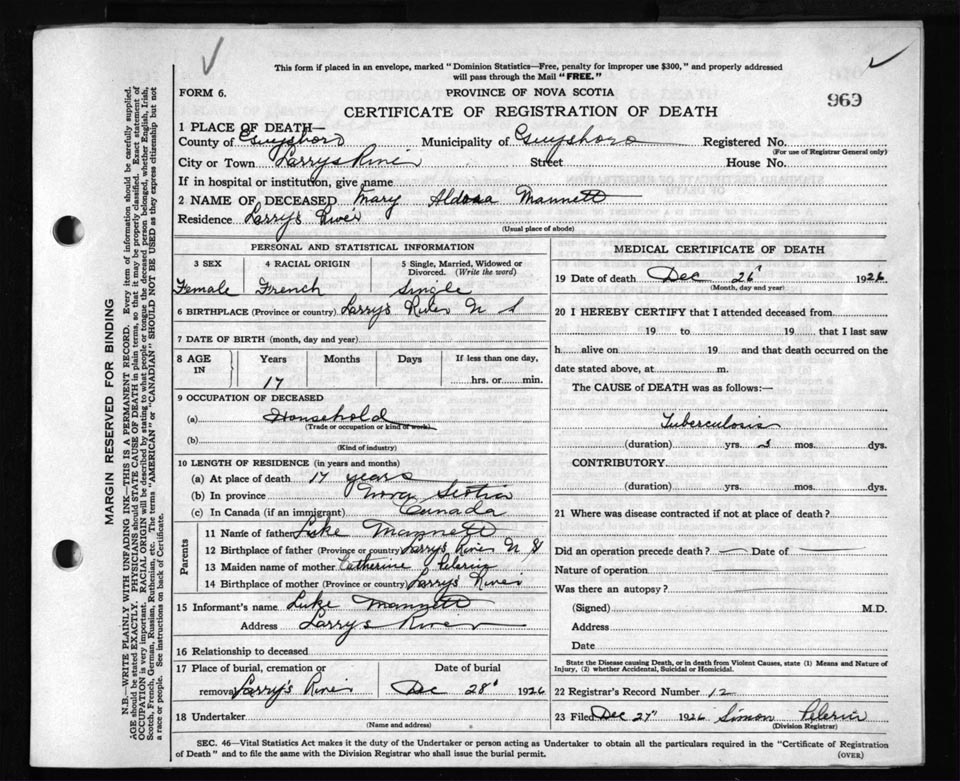 This form if placed in an envelope, marked "Dominion Statistics—Free, penalty for improper use $300," and properly addressed
will pass through the Mail "FREE."
FORM 6.
PROVINCE OF NOVA SCOTIA
969
CERTIFICATE OF REGISTRATION OF DEATH
1 PLACE OF DEATH—
County of Guysboro Municipality of Guysboro Registered No.
(For use of Registrar General only)
City or Town Larrys River Street House No.
If in hospital or institution, give name
2 NAME OF DECEASED Mary Mannett
Residence Larry's River
(Usual place of abode)
PERSONAL AND STATISTICAL INFORMATION
3 SEX 4 RACIAL ORIGIN 5 Single, Married, Widowed or Divorced. (Write the word)
Female French Single
6 BIRTHPLACE (Province or country) Larrys River N S
7 DATE OF BIRTH (month, day and year)
8 AGE IN Years Months Days If less than one day,
17 hrs. or min.
9 OCCUPATION OF DECEASED
(a) Household
(Trade or occupation or kind of work)
(b)
(Kind of industry)
10 LENGTH OF RESIDENCE (in years and months)
(a) At place of death 17 years
(b) In province Nova Scotia
(c) In Canada (if an immigrant) Canada
Parents
11 Name of father Luke Mannett
12 Birthplace of father (Province or country) Larrys River N S
13 Maiden name of mother Catherine Pelerin
14 Birthplace of mother (Province or country) Larrys River
15 Informant's name Luke Mannett
Address Larrys River
16 Relationship to deceased
17 Place of burial, cremation or Date of burial
removal Larry's River Dec 28 1926
18 Undertaker
(Name and address)
MEDICAL CERTIFICATE OF DEATH
19 Date of death Dec 26 1926
(Month, day and year)
20 I HEREBY CERTIFY that I attended deceased from
19 to 19 that I last saw
h alive on 19 and that death occurred on the
date stated above, at m.
The CAUSE of DEATH was as follows:—
Tuberculosis
(duration) yrs. 3 mos. dys.
CONTRIBUTORY
(duration) yrs. mos. dys.
21 Where was disease contracted if not at place of death?
Did an operation precede death? — Date of —
Nature of operation
Was there an autopsy?
(Signed) M.D.
Address
Date
State the Disease causing Death, or in death from Violent Causes, state (1) Means and Nature of
Injury, (2) whether Accidental, Suicidal or Homicidal.
22 Registrar's Record Number 12
23 Filed Dec 27 1926 Simon Pelerin
(Division Registrar)
SEC. 46—Vital Statistics Act makes it the duty of the Undertaker or person acting as Undertaker to obtain all the particulars required in the "Certificate of Registration
of Death" and to file the same with the Division Registrar who shall issue the burial permit. (OVER)
MARGIN RESERVED FOR BINDING
N.B.—WRITE PLAINLY WITH UNFADING INK—THIS IS A PERMANENT RECORD. Every item of information should be carefully supplied.
AGE should be stated EXACTLY. PHYSICIANS should STATE CAUSE OF DEATH in plain terms, so that it may be properly classified. Exact statement of
OCCUPATION is very important. RACIAL ORIGIN will be described by stating to what people or tongue the deceased person belonged, whether English, Irish,
Scotch, French, German, Russian, Ruthenian, etc. The terms "AMERICAN" or "CANADIAN" SHOULD NOT BE USED as they express citizenship but not
a race or people. See instructions on back of Certificate.